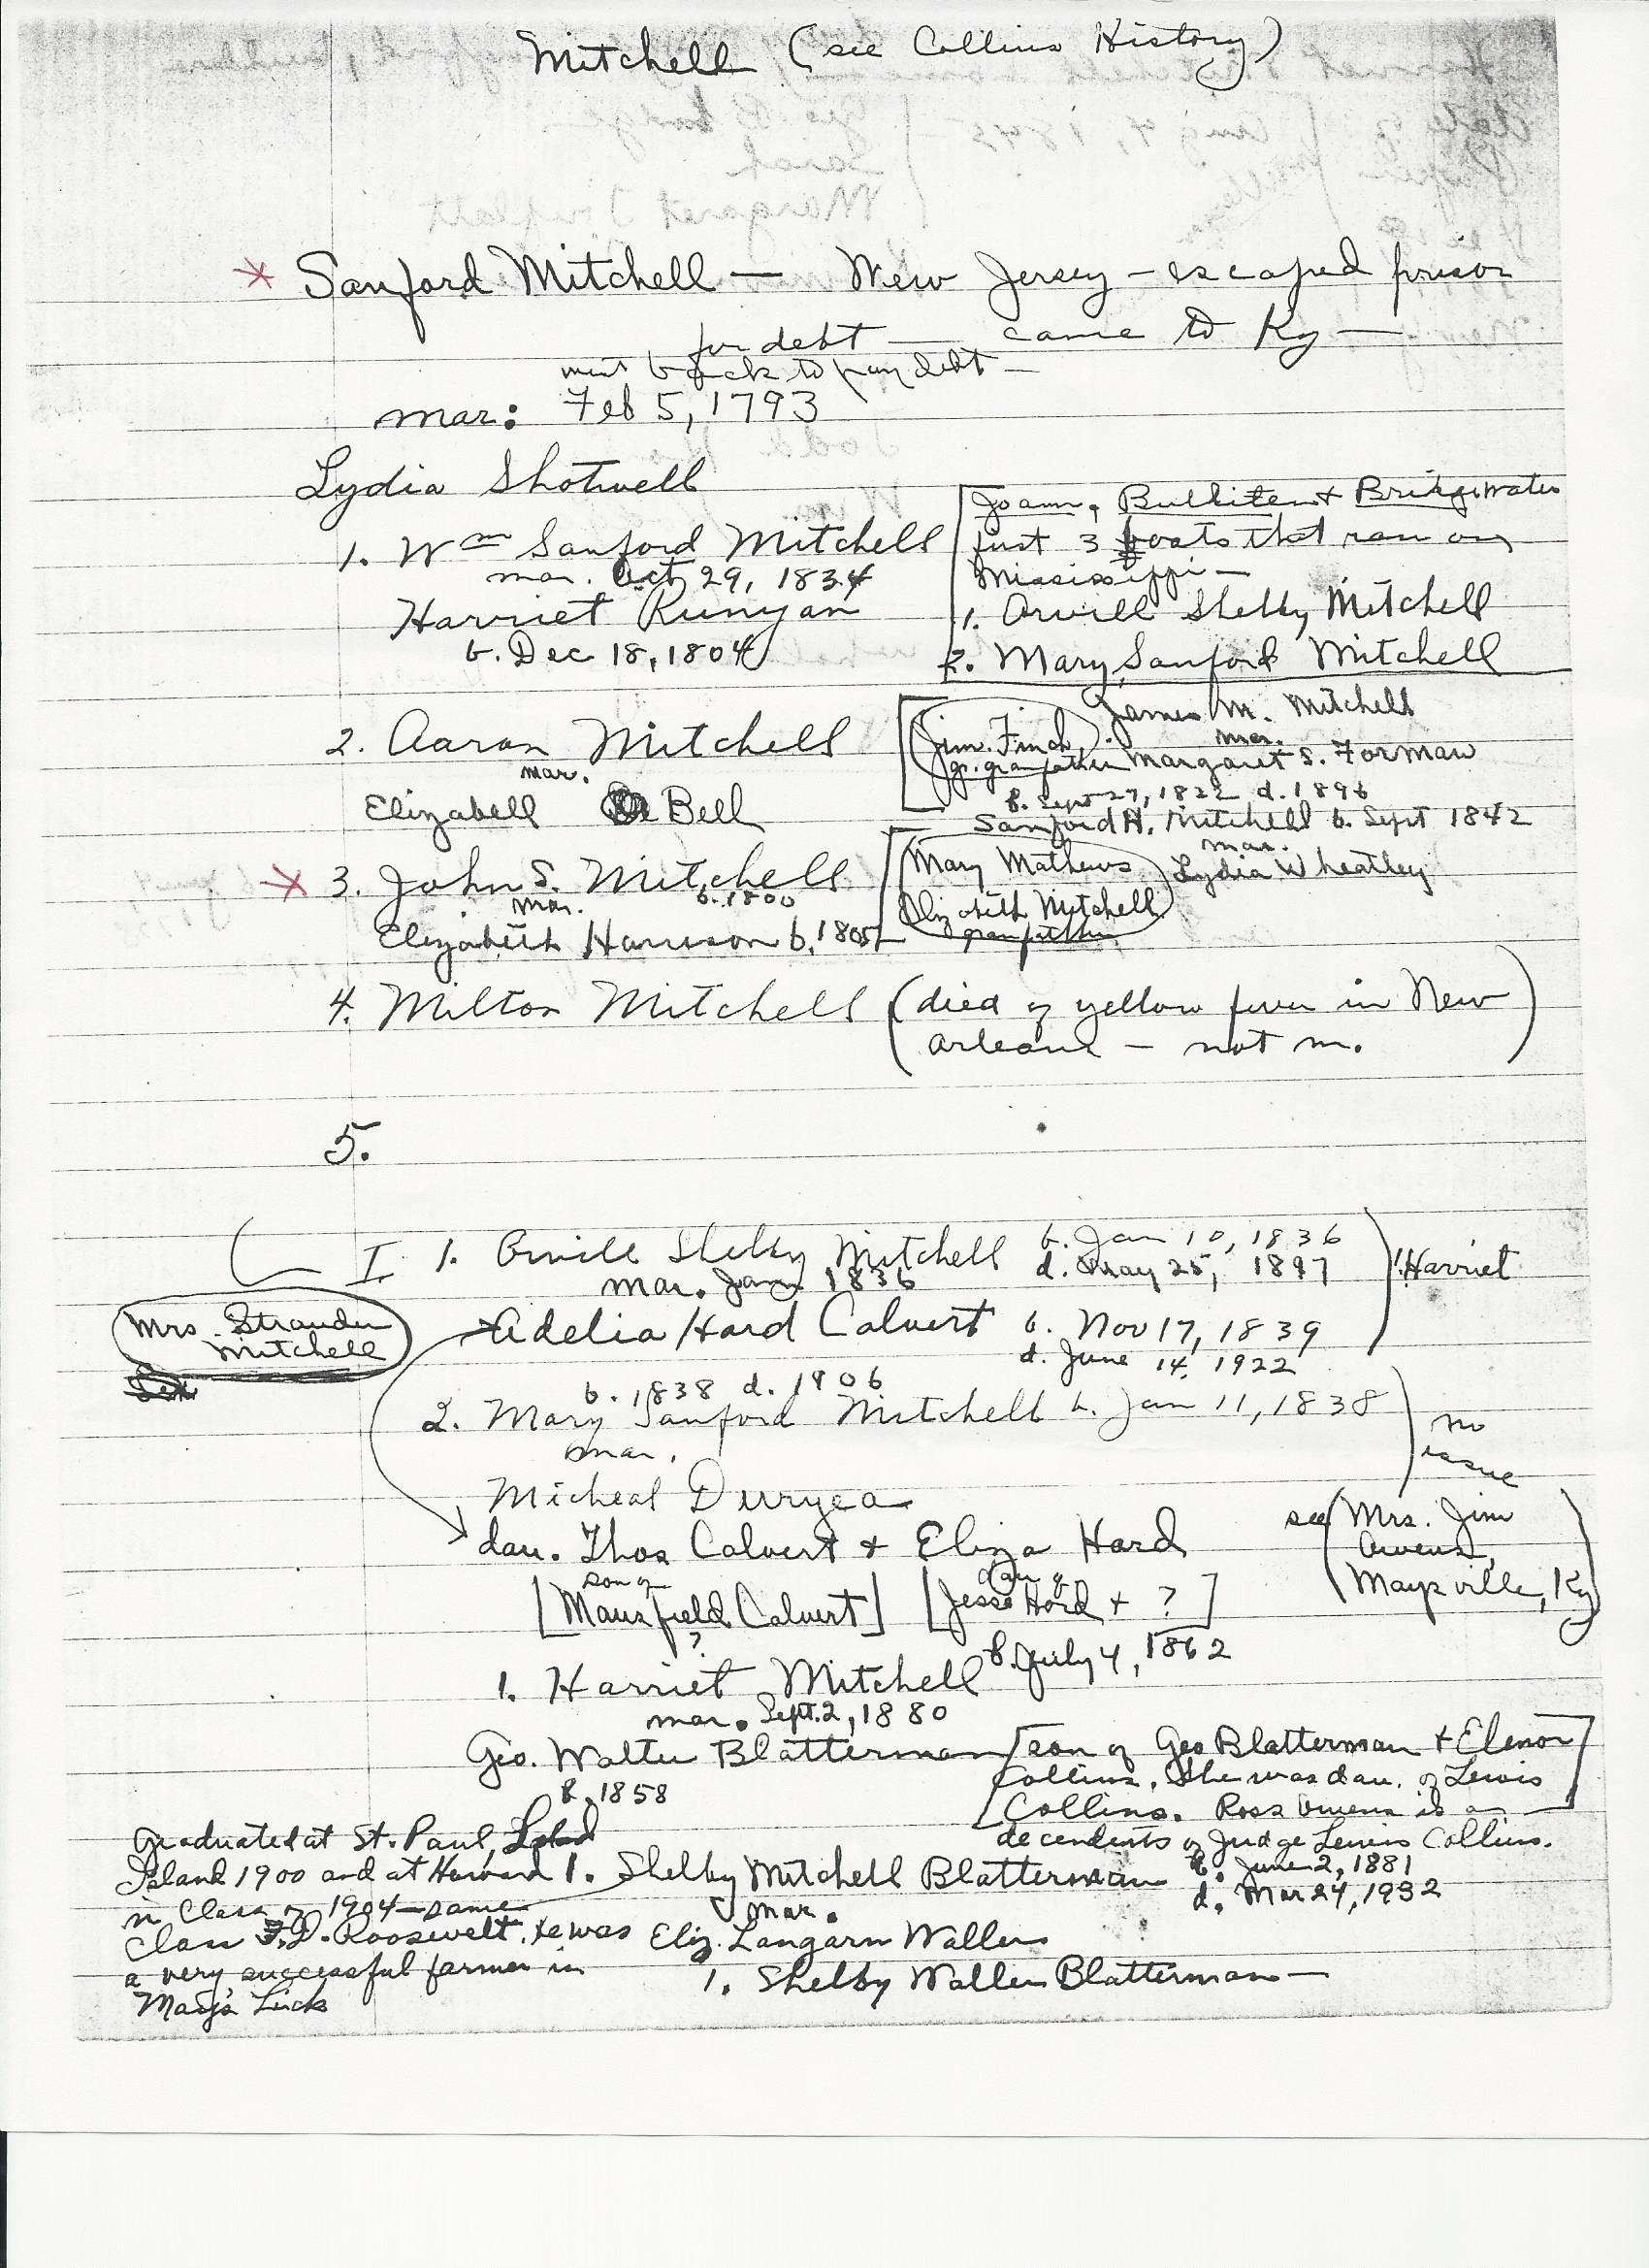 Mitchell (see Collins History)
* Sanford Mitchell — New Jersey - escaped prison
for debt — came to Ky —
went back to pay debt —
mar: Feb 5, 1793
Lydia Shotwell
1. Wm Sanford Mitchell
mar. Oct 29, 1834
Harriet Runyan
b. Dec 18, 1804
[Joann, & Bridgewater
first 3 boats that ran on
Mississippi —
1. Orvill Shelby Mitchell
2. Mary Sanford Mitchell
2. Aaron Mitchell
mar.
Elizabeth Bell
[(Jim. Finch,
gr. granfather)
James M. Mitchell
mar.
Margaret S. Forman
b. Sept 27, 1822 d. 1896
Sanford H. Mitchell b. Sept 1842
mar.
Lydia Wheatley
* 3. John S. Mitchell
mar. b. 1800
Elizabeth Harrison b. 1805
[(Mary Mathews
Elizabeth Mitchell
granfather)
4. Milton Mitchell (died of yellow fever in New
Orleans — not m.)
5.
I. 1. Orvill Shelby Mitchell b. Jan 10, 1836
mar. Jan 1836 d. May 25, 1897
) Harriet
Adelia Hord Calvert b. Nov 17, 1839
d. June 14, 1922
(Mrs. Strauder
Mitchell)
b. 1838 d. 1906
2. Mary Sanford Mitchell b. Jan 11, 1838
) no
issue
mar.
Micheal Duryea
dau. Thos Calvert & Eliza Hord
see (Mrs. Jim
Owens,
Maysville, Ky)
son of
[Mansfield Calvert]
?
dau of
[Jesse Hord + ?]
1. Harriet Mitchell b. July 4, 1862
mar. Sept. 2, 1880
Geo. Walter Blatterman
b. 1858
[son of Geo Blatterman & Elenor
Collins. She was dau. of Lewis
Collins. Ross Owens is a
decendents of Judge Lewis Collins.]
Graduated at St. Paul,
Island 1900 and at Harvard
in Class of 1904 — same
class F.D. Roosevelt. He was
a very successful farmer in
Mays Lick
1. Shelby Mitchell Blatterman b. June 2, 1881
d. Mar 24, 1932
mar.
Eliz. Langarn Waller
1. Shelby Waller Blatterman —